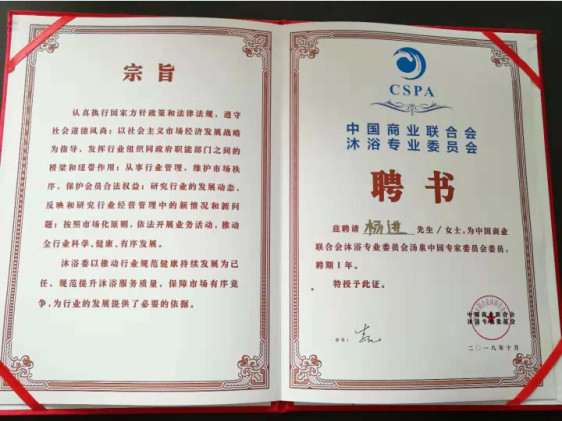 宗旨
认真执行国家方针政策和法律法规，遵守
社会道德风尚；以社会主义市场经济发展战略
为指导，发挥行业组织同政府职能部门之间的
桥梁和纽带作用；从事行业管理，维护市场秩
序，保护会员合法权益；研究行业的发展动态，
反映和研究行业经营管理中的新情况和新
问题；按照市场化原则，依法开展业务活动，推动
全行业科学、健康、有序发展。
沐浴委以推动行业规范健康持续发展为己
任，规范提升沐浴服务质量，保障市场有序竞
争，为行业的发展提供了必要的依据。
CSPA
中国商业联合会
沐浴专业委员会
聘书
兹聘请 杨进 先生/女士，为中国商业
联合会沐浴专业委员会汤泉中国专家委员会委员，
聘期1年。
特授予此证。
中国商业联合会
沐浴专业委员会
二〇一八年十月